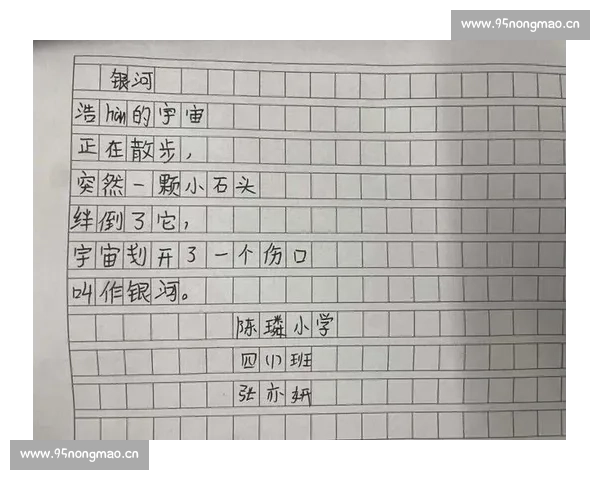 www.95nongmao.cn
银河
浩hàn的宇宙
正在散步，
突然一颗小石头
绊倒了它，
宇宙划开了一个伤口
叫作银河。
陈璘小学
四(1)班
张亦妍
www.95nongmao.cn